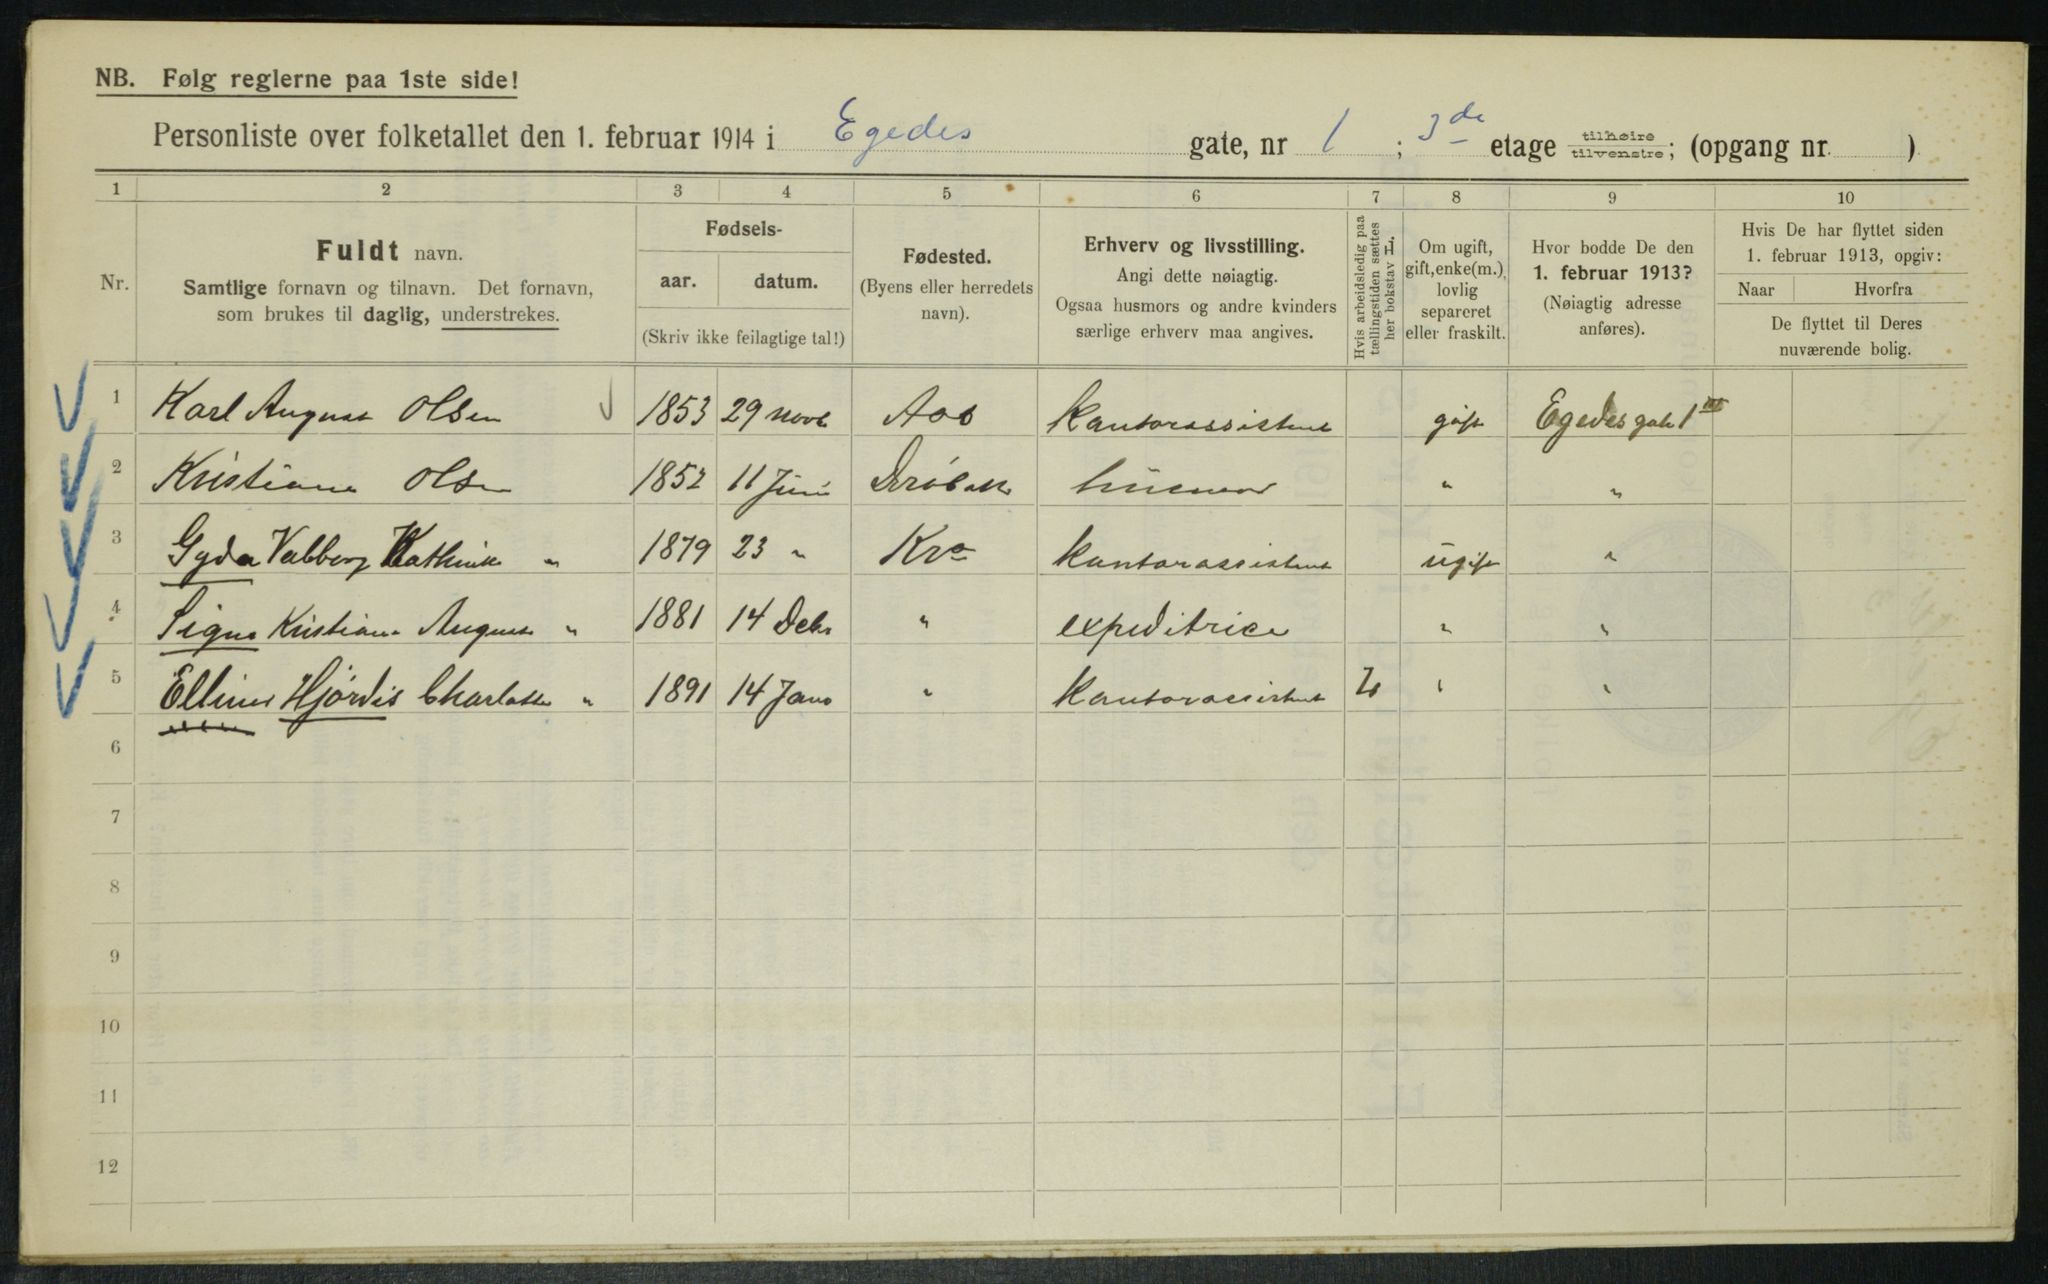 NB. Følg reglerne paa 1ste side!
Personliste over folketallet den 1. februar 1914 i Egedes gate, nr 1 ; 3de etage tilhøire tilvenstre; (opgang nr. )
1 2 3 4 5 6 7 8 9 10
Nr.
Fuldt navn.
Samtlige fornavn og tilnavn. Det fornavn,
som brukes til daglig, understrekes.
Fødsels-
aar. datum.
(Skriv ikke feilagtige tal!)
Fødested.
(Byens eller herredets
navn).
Erhverv og livsstilling.
Angi dette nøiagtig.
Ogsaa husmors og andre kvinders
særlige erhverv maa angives.
Hvis arbeidsledig paa
tællingstiden sættes
her bokstav L.
Om ugift,
gift, enke(m.),
lovlig
separeret
eller fraskilt.
Hvor bodde De den
1. februar 1913?
(Nøiagtig adresse
anføres).
Hvis De har flyttet siden
1. februar 1913, opgiv:
Naar Hvorfra
De flyttet til Deres
nuværende bolig.
1 Karl August Olsen 1853 29 Novb Aas Kantorassistent gift Egedes gate 1 III
2 Kristiane Olsen 1852 11 Juni Drøbak husmor " "
3 Gyda Valborg Kathinka " 1879 23 " Kra Kantorassistent ugift "
4 Signe Kristiane Augusta " 1881 14 Debr " expeditrice " "
5 Elline Hjørdis Charlotte " 1891 14 Jan " Kantorassistent L " "
6
7
8
9
10
11
12